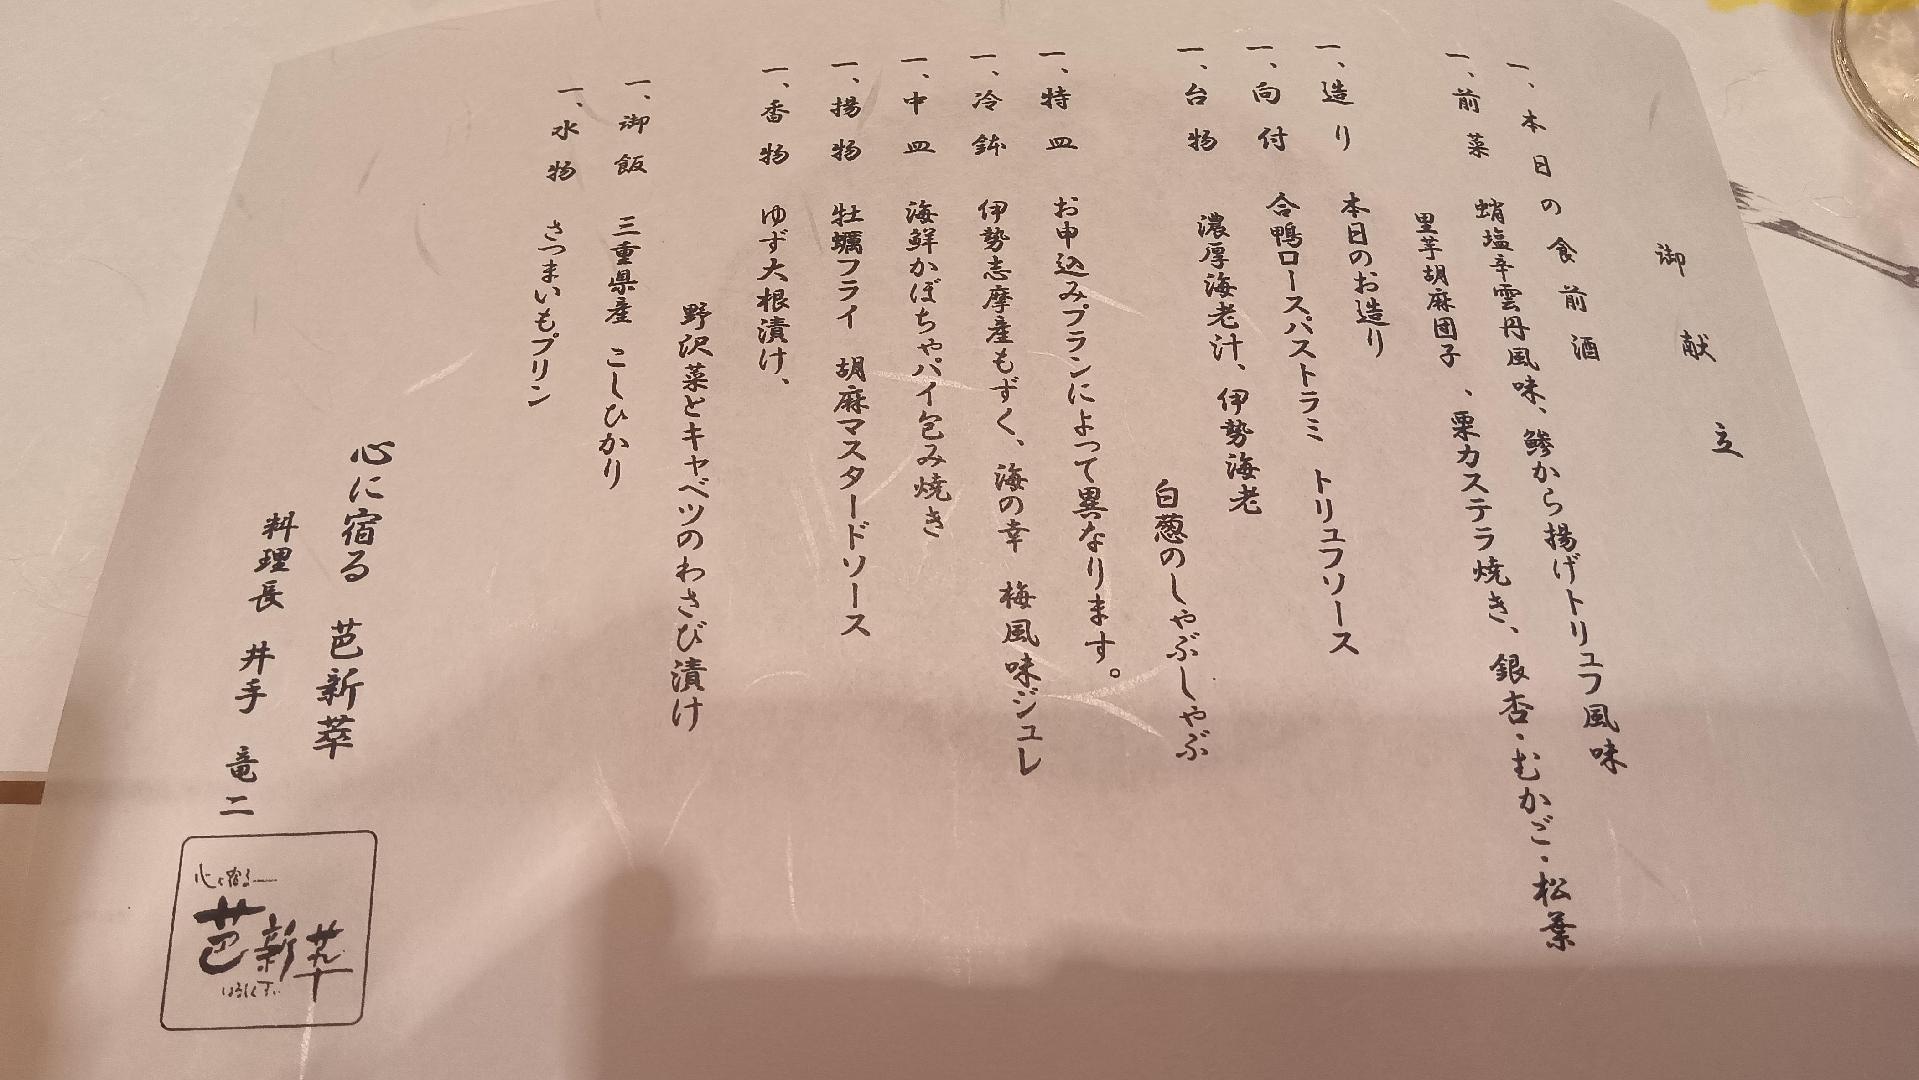 御献立
一、本日の食前酒
一、前菜 蛸塩辛雲丹風味、鯵から揚げトリュフ風味
里芋胡麻団子、栗カステラ焼き、銀杏・むかご・松葉
一、造り 本日のお造り
一、向付 合鴨ロースパストラミ トリュフソース
一、台物 濃厚海老汁、伊勢海老
白葱のしゃぶしゃぶ
一、特皿 お申込みプランによって異なります。
一、冷鉢 伊勢志摩産もずく、海の幸 梅風味ジュレ
一、中皿 海鮮かぼちゃパイ包み焼き
一、揚物 牡蠣フライ 胡麻マスタードソース
一、香物 ゆず大根漬け、
野沢菜とキャベツのわさび漬け
一、御飯 三重県産 こしひかり
一、水物 さつまいもプリン
心に宿る 芭新萃
料理長 井手 竜二
心に宿る
芭新萃
はるしんすい